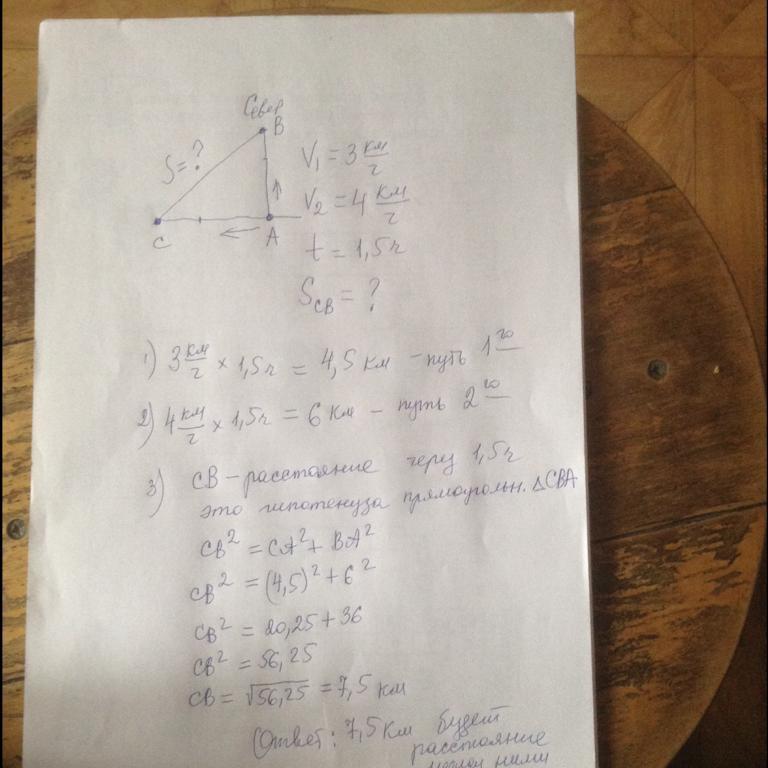 Север
B
S=?
C
A
V₁ = 3 км/ч
V₂ = 4 км/ч
t = 1,5 ч
S_CB = ?
1) 3 км/ч × 1,5 ч = 4,5 км – путь 1го
2) 4 км/ч × 1,5 ч = 6 км – путь 2го
3) СВ – расстояние через 1,5 ч
это гипотенуза прямоугольн. ΔCBA
CB² = CA² + BA²
CB² = (4,5)² + 6²
CB² = 20,25 + 36
CB² = 56,25
CB = √56,25 = 7,5 км
Ответ: 7,5 км будет
расстояние
между ними